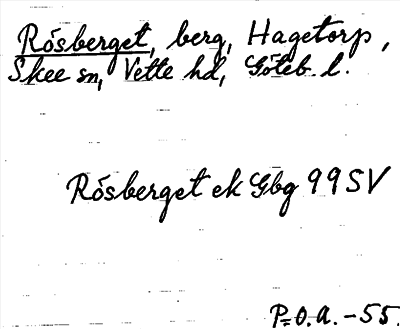 Rösberget, berg, Hagetorp,
Skee sn, Vette hd, Göteb. l.
Rösberget ek Gbg 99 SV
P=O.A. -55.